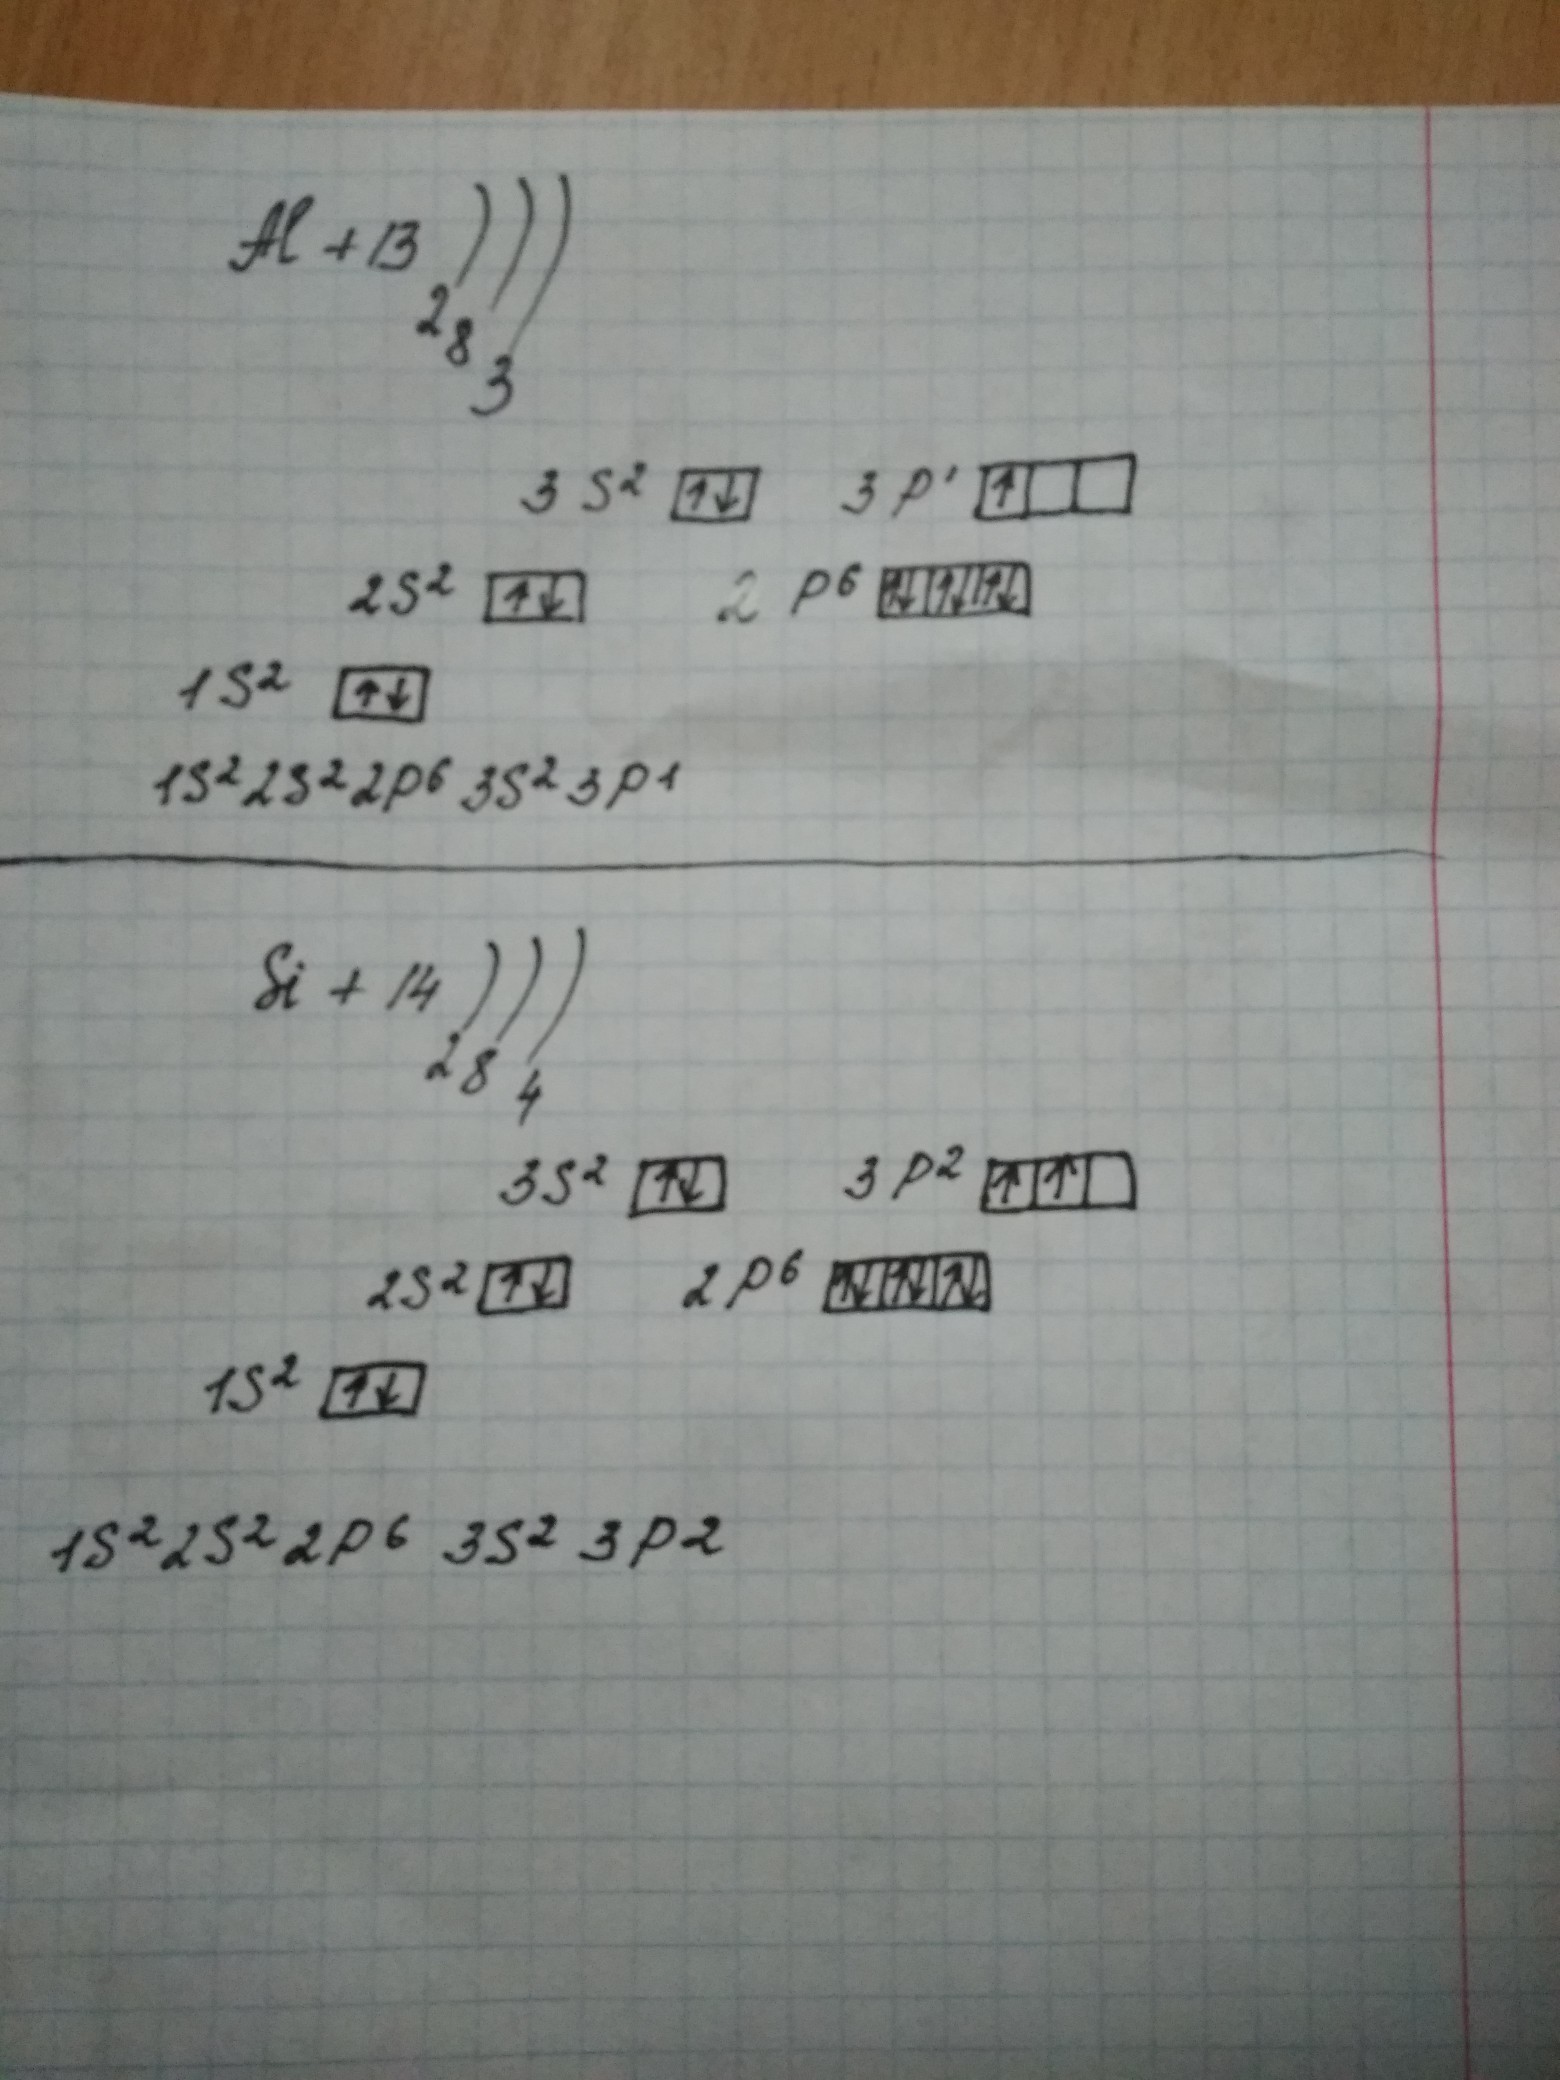 Al +13 )))
2 8 3
3 S² ↑↓ 3 P¹ ↑
2S² ↑↓ 2 P⁶ ↑↓ ↑↓ ↑↓
1S² ↑↓
1S² 2S² 2P⁶ 3S² 3P1
Si + 14 )))
2 8 4
3S² ↑↓ 3 P² ↑ ↑
2S² ↑↓ 2 P⁶ ↑↓ ↑↓ ↑↓
1S² ↑↓
1S² 2S² 2P⁶ 3S² 3P2